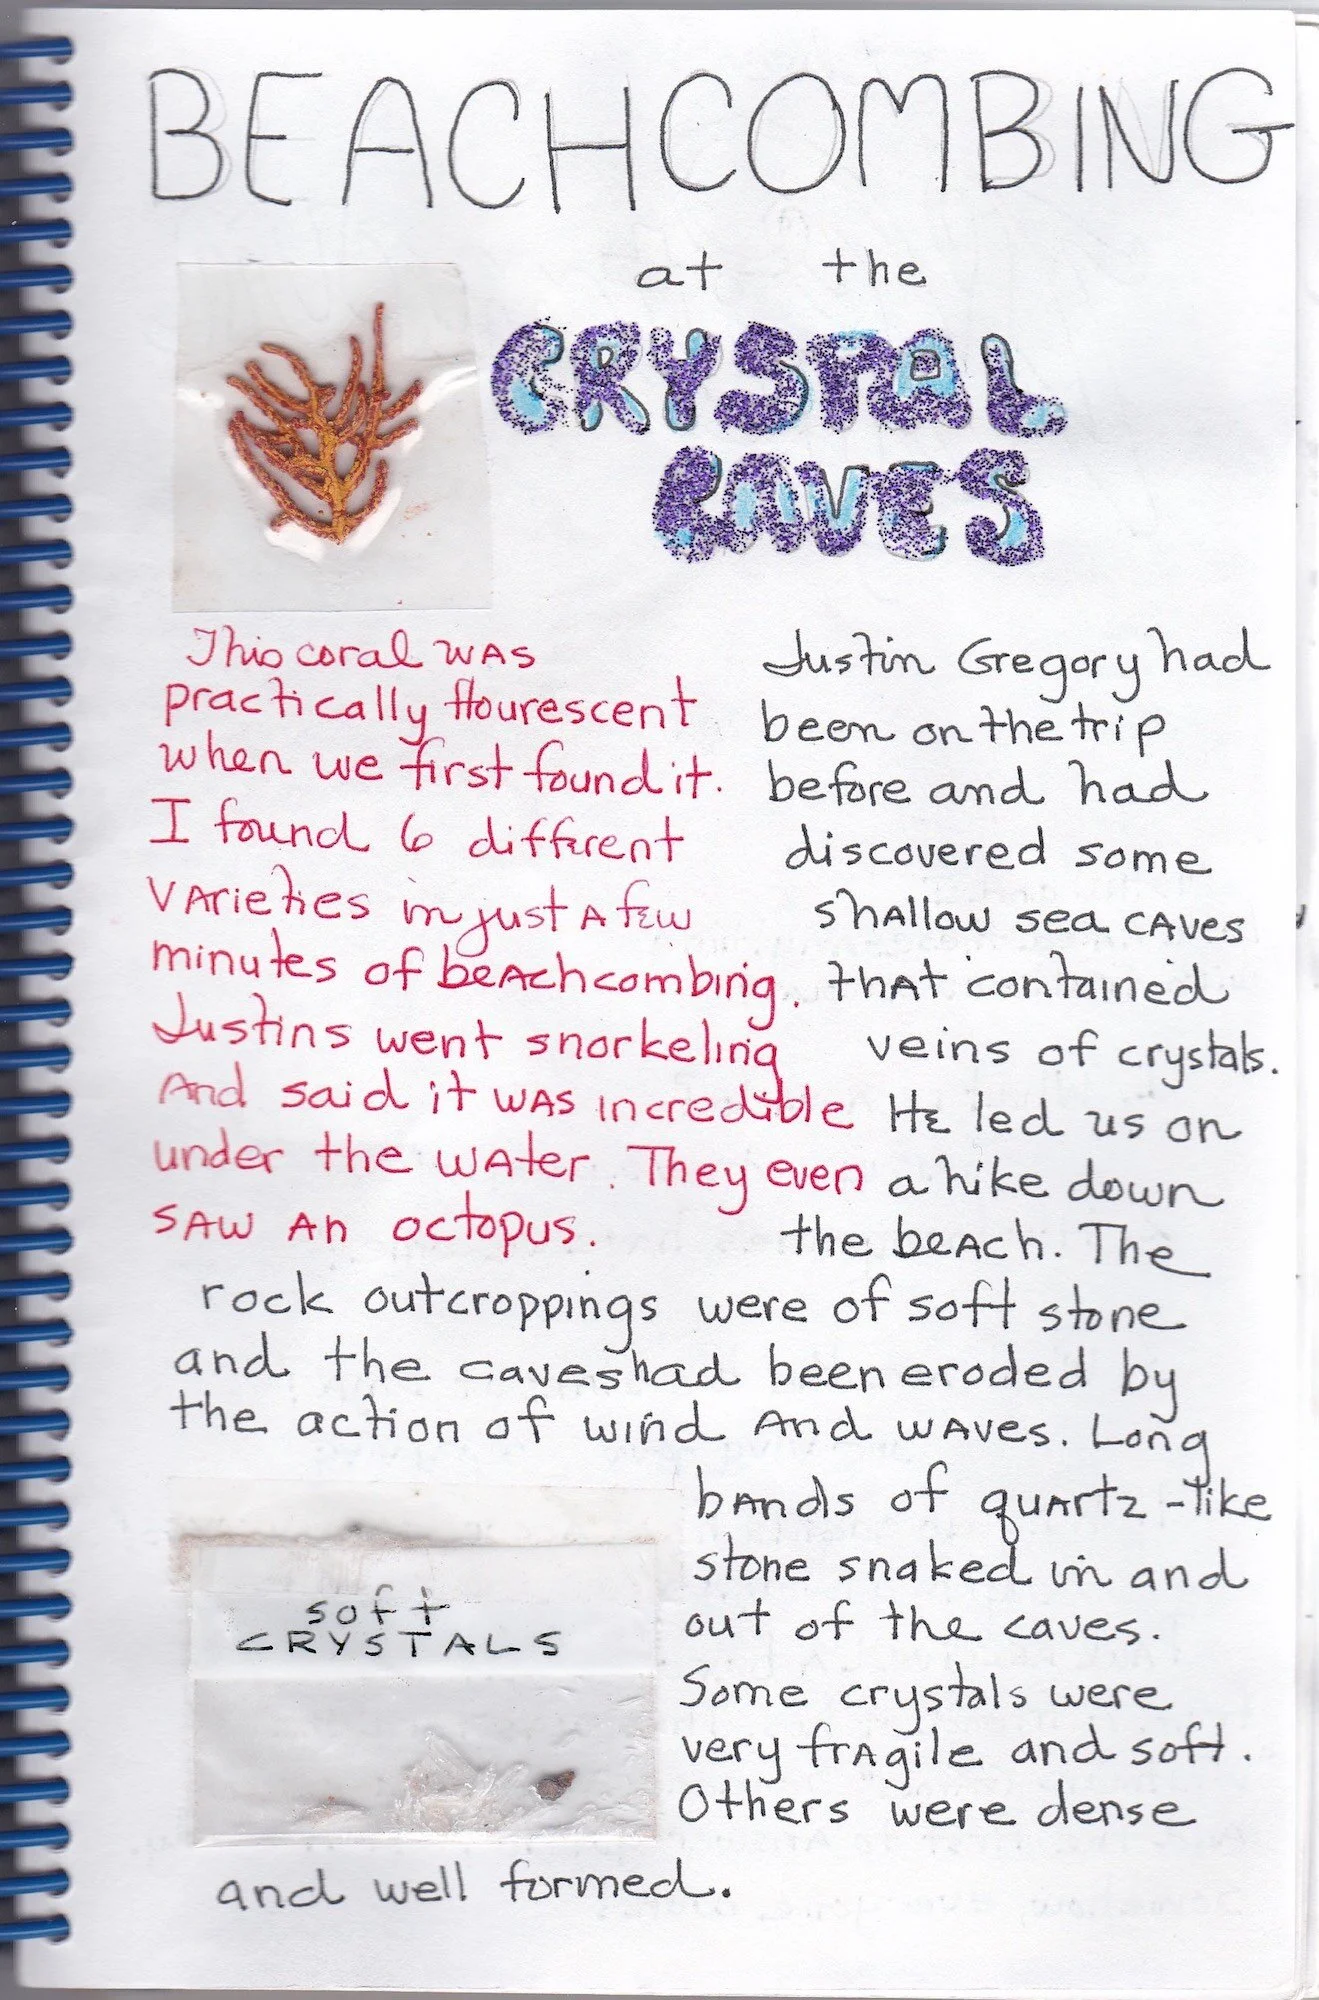 BEACHCOMBING
at the
CRYSTAL
CAVES
This coral was
practically flourescent
when we first found it.
I found 6 different
varieties in just a few
minutes of beachcombing.
Justins went snorkeling
And said it was incredible
under the water. They even
saw an octopus.
Justin Gregory had
been on the trip
before and had
discovered some
shallow sea caves
that contained
veins of crystals.
He led us on
a hike down
the beach. The
rock outcroppings were of soft stone
and the caves had been eroded by
the action of wind and waves. Long
bands of quartz-like
stone snaked in and
out of the caves.
Some crystals were
very fragile and soft.
Others were dense
and well formed.
soft
CRYSTALS